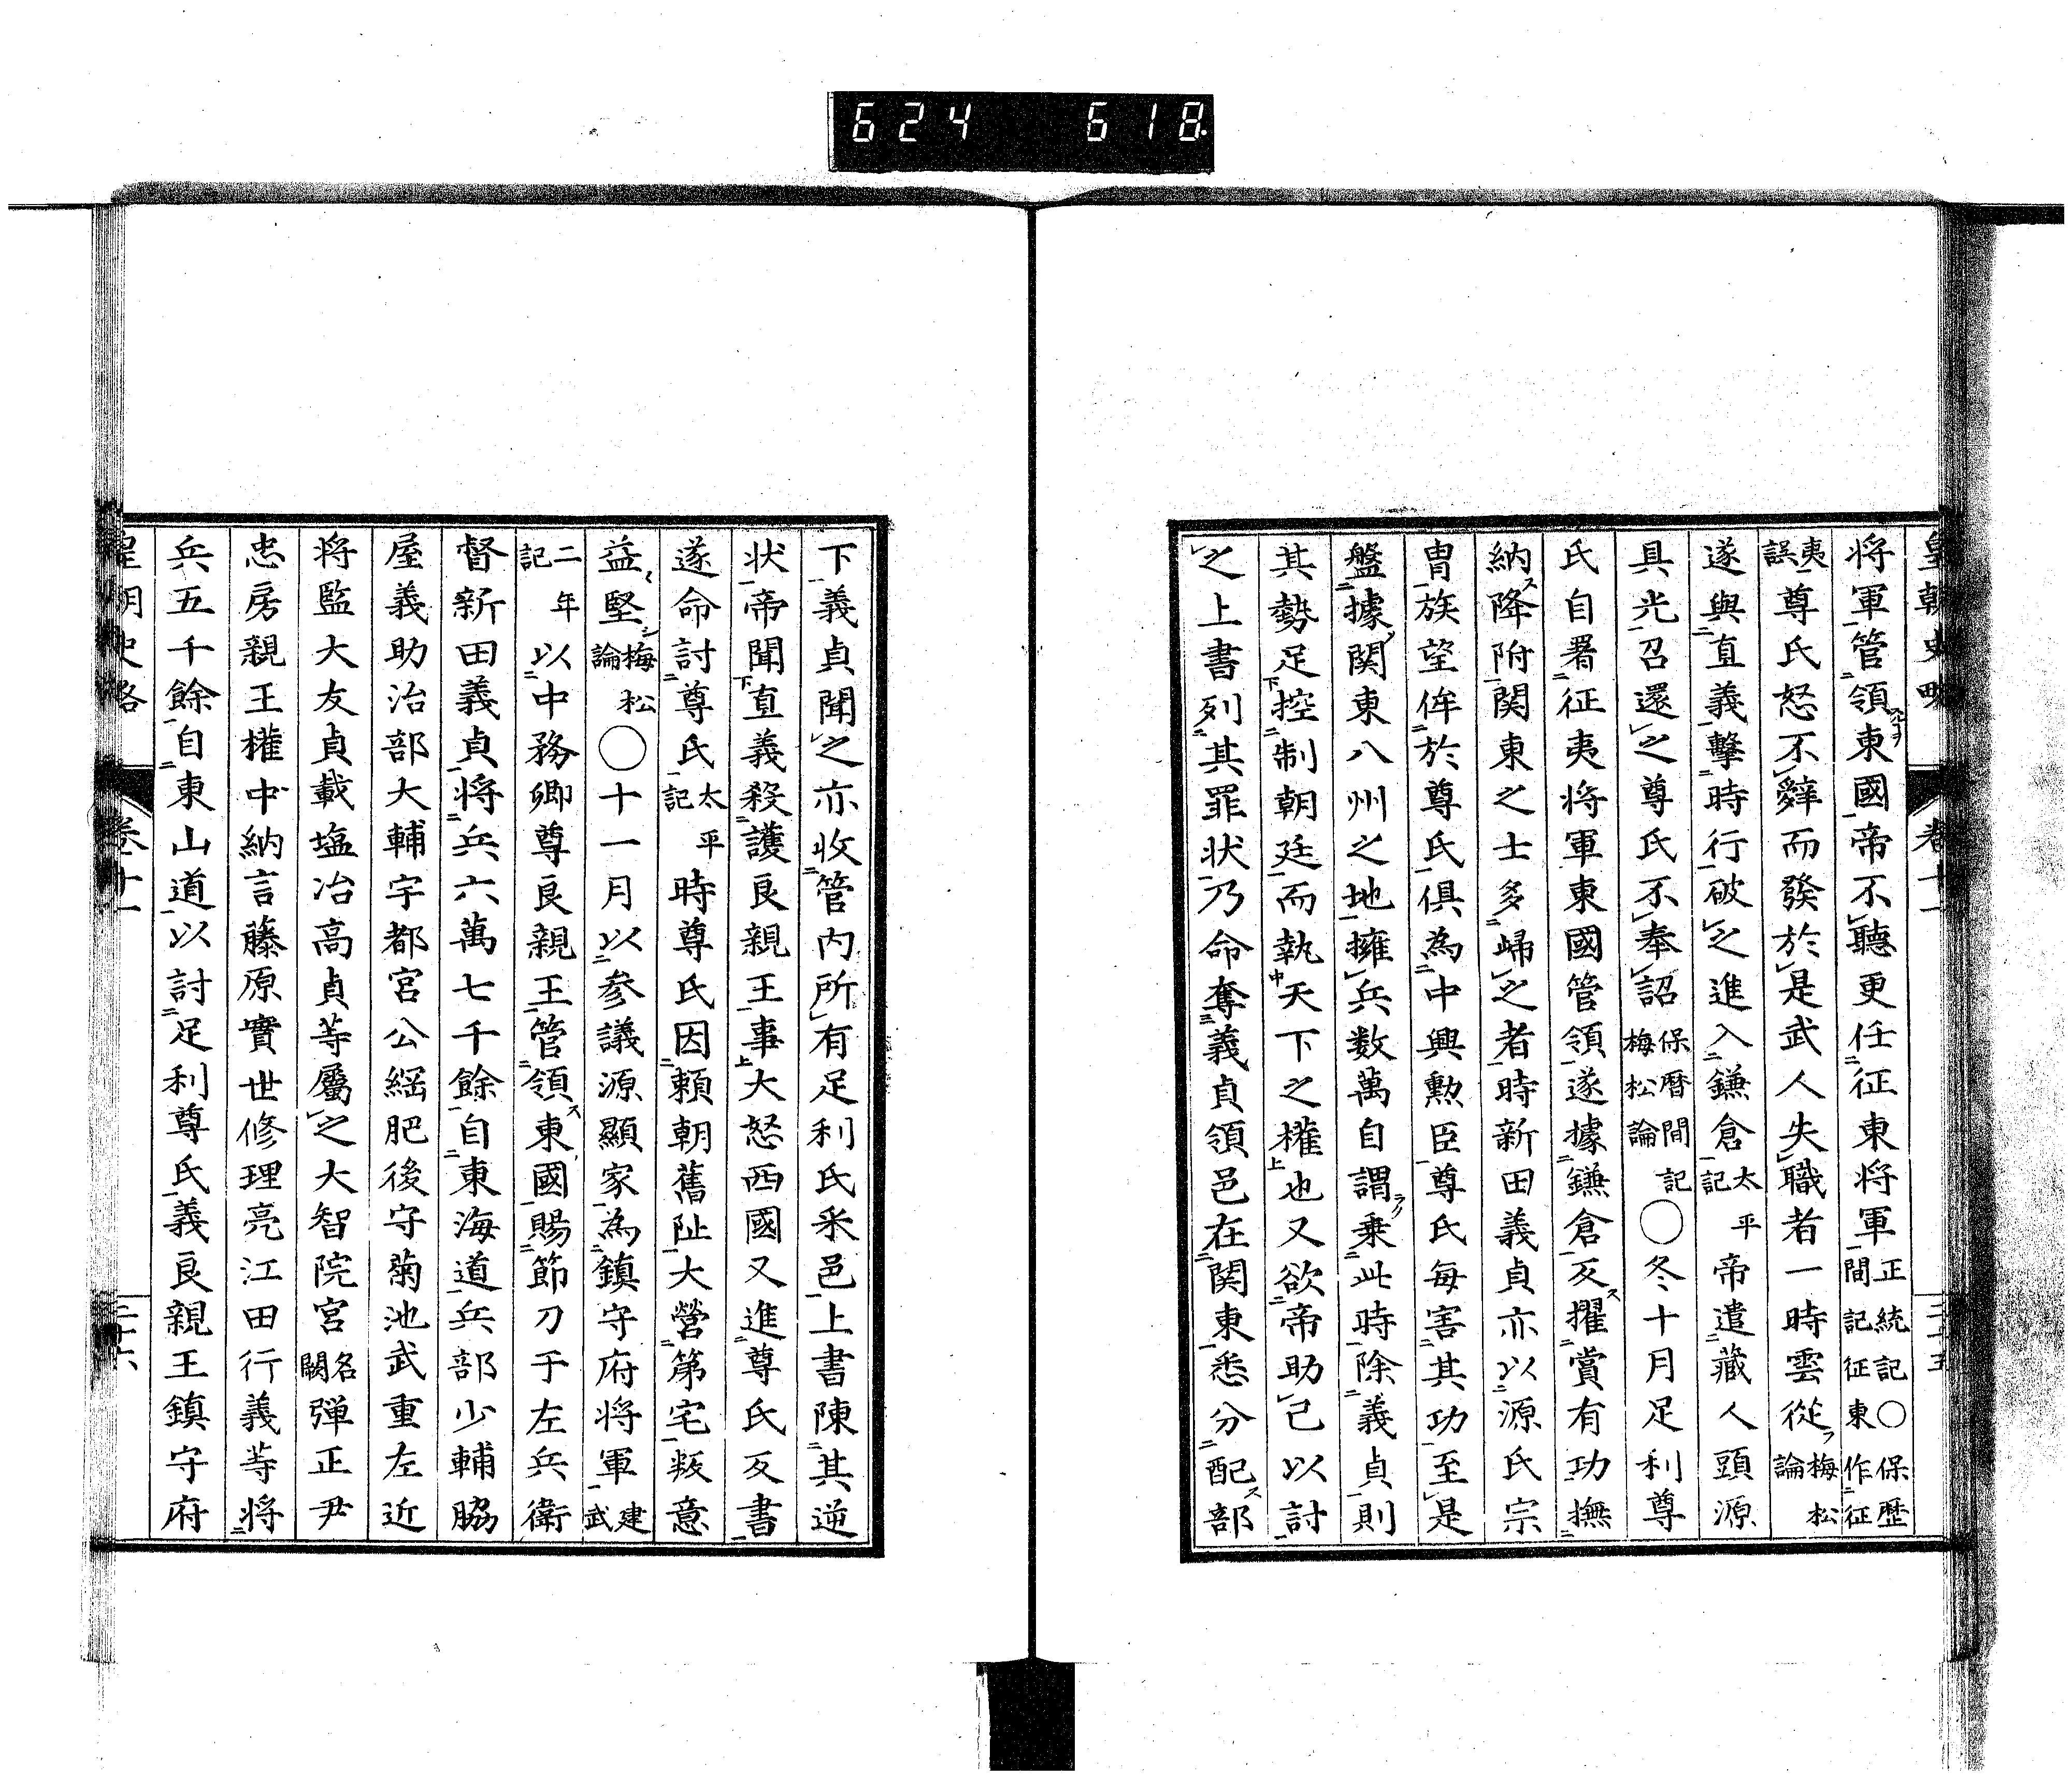 624 618
皇朝史略 卷十一 二十五
将軍管領東國帝不聽更任征東将軍正統記○保歴間記征東作征
夷誤尊氏怒不辭而發於是武人失職者一時雲從梅松論
遂與直義擊時行破之進入鎌倉太平記帝遣藏人頭源
具光召還之尊氏不奉詔保暦間記梅松論○冬十月足利尊
氏自署征夷将軍東國管領遂據鎌倉反擢賞有功撫
納降附関東之士多歸之者時新田義貞亦以源氏宗
胄族望侔於尊氏俱為中興勲臣尊氏每害其功至是
盤據関東八州之地擁兵数萬自謂乗此時除義貞則
其勢足控制朝廷而執天下之權也又欲帝助己以討
之上書列其罪状乃命奪義貞領邑在関東悉分配部
下義貞聞之亦收管内所有足利氏采邑上書陳其逆
状帝聞直義殺護良親王事大怒西國又進尊氏反書
遂命討尊氏太平記時尊氏因頼朝舊阯大營第宅叛意
益堅梅松論○十一月以参議源顯家為鎮守府将軍建武
二年記以中務卿尊良親王管領東國賜節刀于左兵衛
督新田義貞将兵六萬七千餘自東海道兵部少輔脇
屋義助治部大輔宇都宮公綱肥後守菊池武重左近
将監大友貞載塩冶高貞等屬之大智院宮名闕弾正尹
忠房親王權中納言藤原實世修理亮江田行義等将
兵五千餘自東山道以討足利尊氏義良親王鎮守府
皇朝史略 卷十一 二十六